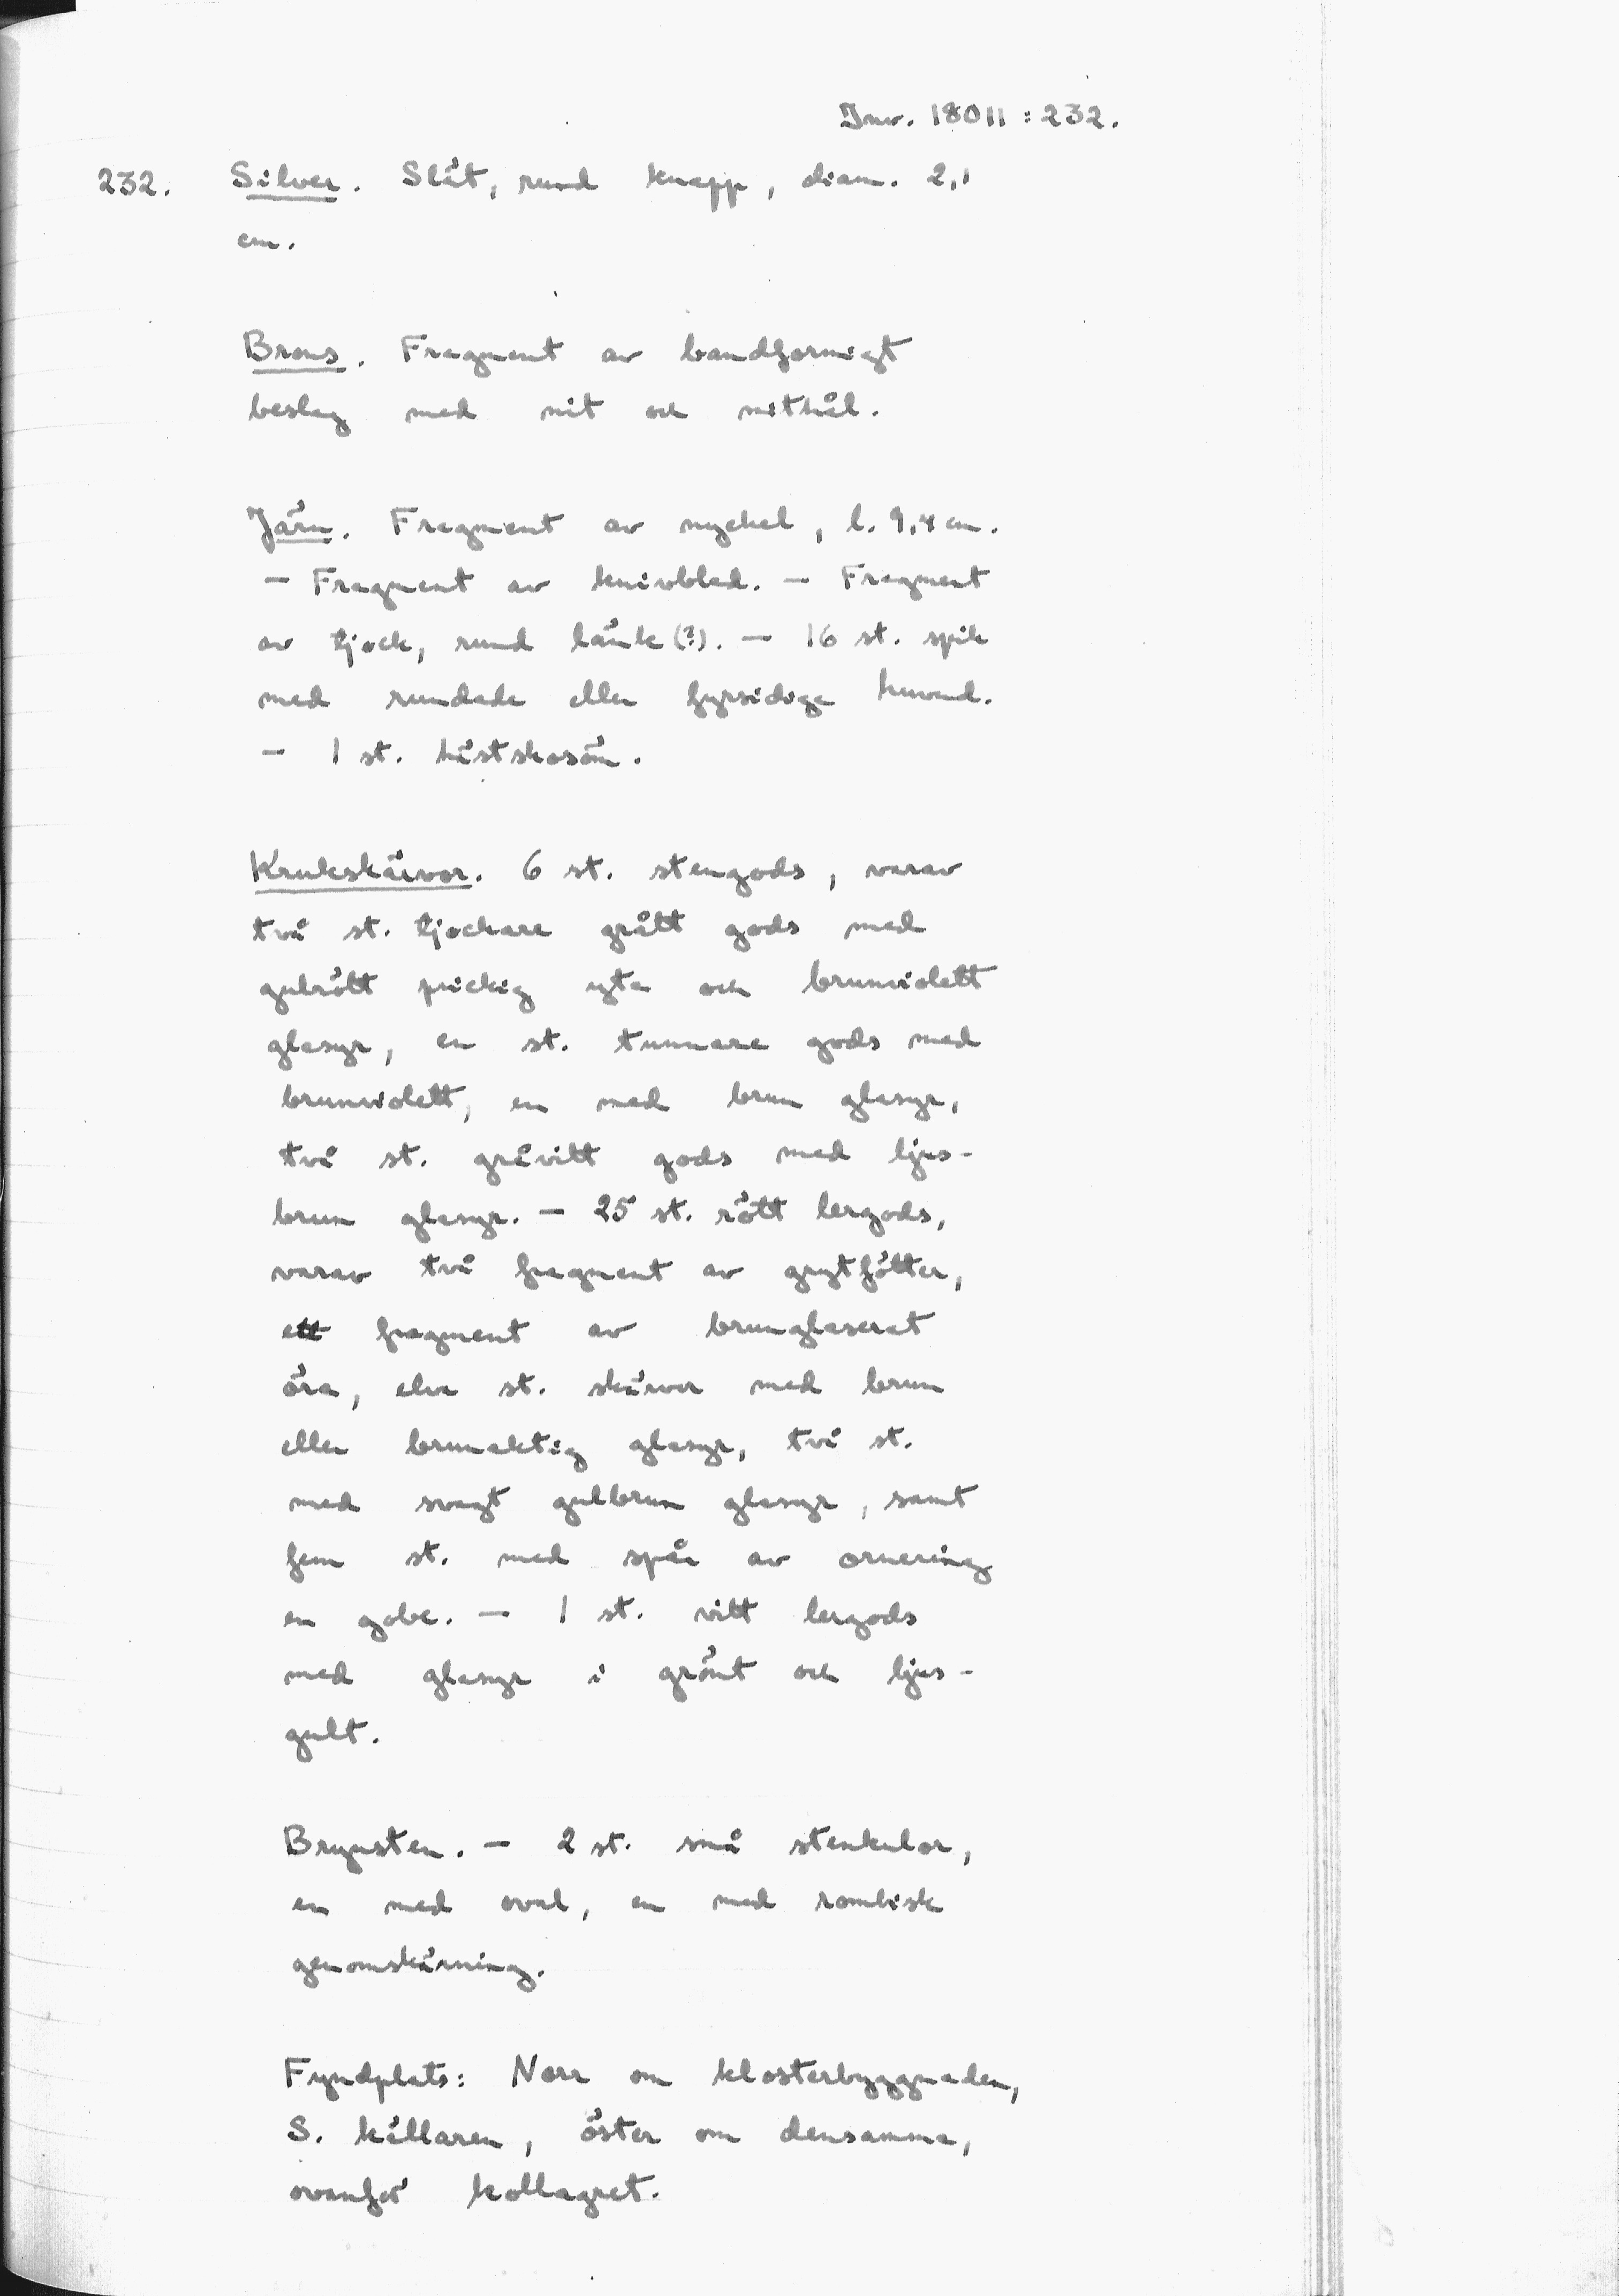 Inv. 18011:232.
232. Silver. Slät, rund knapp, diam. 2,1
cm.
Brons. Fragment av bandformigt
beslag med nit och nithål.
Järn. Fragment av nyckel, l. 9,4 cm.
— Fragment av knivblad. — Fragment
av tjock, rund länk (?). — 16 st. spik
med rundade eller fyrsidiga huvud.
— 1 st. hästskosöm.
Krukskärvor. 6 st. stengods, varav
två st. tjockare grått gods med
gulrött prickig yta och brunviolett
glasyr, en st. tunnare gods med
brunviolett, en med brun glasyr,
två st. gråvitt gods med ljus-
brun glasyr. — 25 st. rött lergods,
varav två fragment av grytfötter,
ett fragment av brunglaserat
öra, elva st. skärvor med brun
eller brunaktig glasyr, två st.
med svagt gulbrun glasyr, samt
fem st. med spår av ornering
en gobe. — 1 st. vitt lergods
med glasyr i grönt och ljus-
gult.
Brynsten. — 2 st. små stenkulor,
en med oval, en med rombisk
genomskärning.
Fyndplats: Norr om klosterbyggnaden,
S. källaren, öster om densamma,
ovanför kollagret.